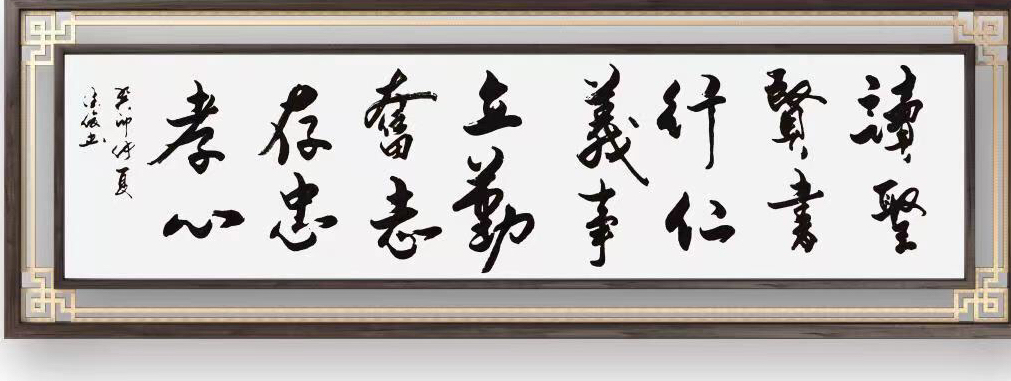 讀聖
賢書
行仁
義事
立勤
奮志
存忠
孝心
癸卯仲夏